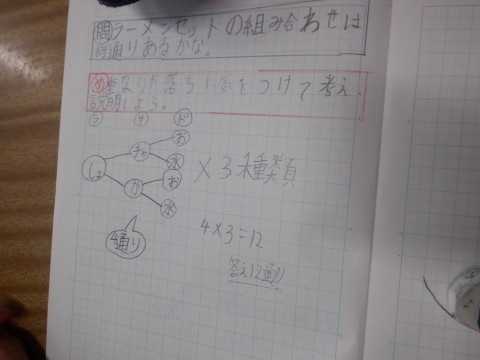 問ラーメンセットの組み合わせは
何通りあるかな。
め重なりや落ちに気をつけて考え、
説明しよう。
ラ サ ド
お
チャ
水
しょ
×3種類
お
カ
水
4通り
4×3=12
答え12通り